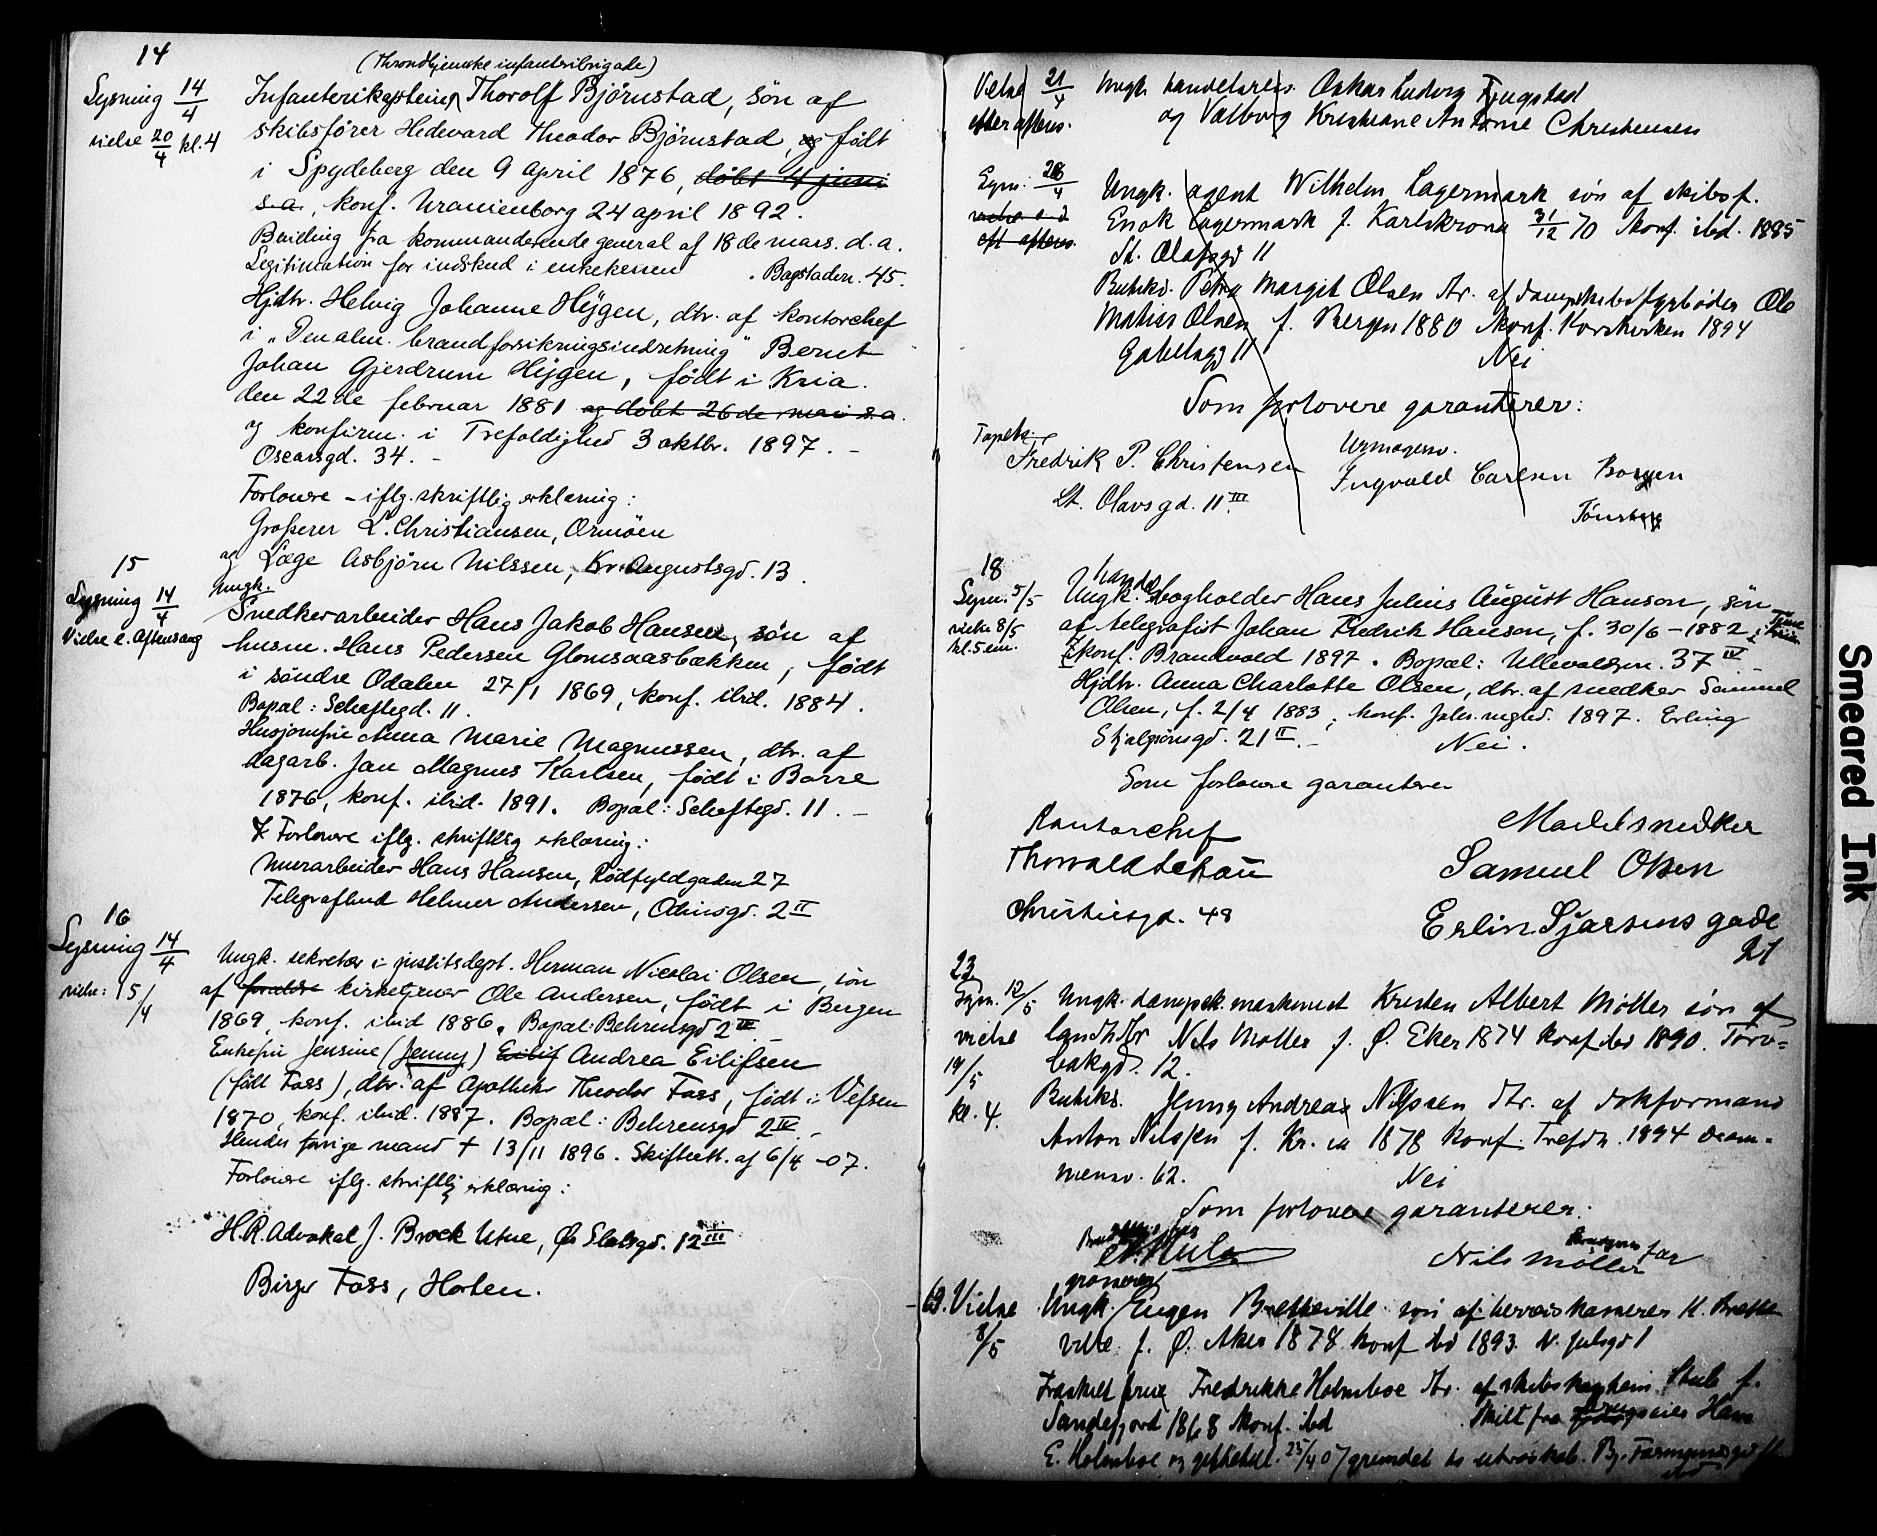 14
(Throndhjemske infanteribrigade)
Lysning 14/4
vielse 20/4 kl. 4
Infanterikaptein Thorolf Björnstad, søn af
skibsfører Hedevard Theodor Björnstad, og født
i Spydeberg den 9 april 1876, døbt 4 juni
s.a., konf. Uranienborg 24 april 1892.
fra kommanderende general af 18de mars. d.a.
Legitimation for indskud i enkekassen . Bogstadvn. 45.
Hjdtr. Helvig Johanne Heÿgen, dtr. af kontorchef
i "Den alm. brandforsikringsindretning" Bernt
Johan Gjerdrum Heÿgen, født i Kria.
den 22de februar 1881 og døbt 26de mai s.a.
og konfirm. i Trefoldighed 3 oktbr. 1897. -
Oscarsgd. 34. -
Forlovere - iflg. skriftlig erklæring:
Grosserer L. Christiansen, Ormøen
og Læge Asbjörn Nilssen, Kr. Augustsgd. 13.
15
Lysning 14/4
Vielse e. Aftensang
Ungk.
Snedkerarbeider Hans Jakob Hansen, søn af
husm. Hans Pedersen Glomsaasbækken, født
i søndre Odalen 27/1 1869, konf. ibid. 1884.
Bopæl: Schaftegd. 11.
Husjomfru Anna Marie Magnussen, dtr. af
dagarb. Jan Magnus Karlsen, født i Borre
1876, konf. ibid. 1891. Bopæl: Schaftegd. 11. -
Forlovere iflg. skriftlig erklæring:
Murarbeider Hans Hansen, Rødfyldgaden 27
Telegrafbud Helmer Andersen, Odinsgd. 2 II
16
Lysning 14/4
vielse: 15/4
Ungk. sekretær i justitsdept. Herman Nicolai Olsen, søn
af kirketjener Ole Andersen, født i Bergen
1869, konf. ibid 1886. Bopæl: Behrensgd 2 IV
Enkefru Jensine (Jenny) Eilif Andrea Eilifsen
(født Foss), dtr. af Apotheker Theodor Foss, født i Vefsen
1870, konf. ibid. 1887. Bopæl: Behrensgd 2 IV. -
Hendes forrige mand + 13/11 1896. Skifteatt. af 6/4 -07.
Forlovere iflg. skriftlig erklæring:
H.R.Advokat J. Brock Utne, Øv Slotsgd. 12 III
Birger Foss, Horten.
Vielse 21/4
efter aftens.
Ungk. handelsreis. Oskar Ludvig Fjugstad
og Valborg Kristiane Antonie Christensen
Lysn. 28/4
vielse s d
eft aftens.
Ungk. agent Wilhelm Lagermark søn af skibsf.
Enok Lagermark f. Karlskrona 31/12 70 konf. ibd. 1885
St. Olafsgd 11
Butikd. Petra Margit Olsen dtr. af dampskibsfyrbøder Ole
Matias Olsen f. Bergen 1880 konf. Korskirken 1894
11 Nei
Som forlovere garanterer:
Tapets.
Fredrik P. Christensen
St. Olavsgd. 11 III
Urmagersv.
Ingvald Carlsen Borgen
Tønsberg
18
Lysn. 5/5
vielse 8/5
kl. 5 em.
handels
Ungk. bogholder Hans Julius August Hanson, søn
af telegrafist Johan Fredrik Hanson, f. 30/6 - 1882 i
konf. Brandvold 1897. Bopæl: Ullevoldsvn. 37 IV -
Hjdtr. Anna Charlotte Olsen, dtr. af snedker Samuel
Olsen, f. 2/4 1883, konf. Johs. mghd. 1897. Erling
Skjalgsønsgd. 21 II. - Nei.
Som forlovere garanterer
Kontorchef
Thorvald Schau
Christiesgt. 48
Modelsnedker
Samuel Olsen
Erlin Sjarsens gade
21
23
Lysn. 12/5
vielse
19/5
kl. 4.
Ungk. dampsk. maskinist Kristen Albert Møller søn af
landhdlr Nils Møller f. Ø. Eker 1874 konf ibd 1890. Torv=
bakgd. 12.
Butiks. Jenny Andrea Nilssen dtr. af dokformand
Anton Nilssen f. Kr. ia 1878 konf. Trefdh. 1894 Dram=
mensv. 62. Nei
Som forlovere garanterer:
Nils Møller far
grosserer
19. Vielse 8/5
Ungk. Eugen Bretteville søn af herredskasserer H. Brette
ville f. Ø. Aker 1878 konf ibd 1893. N. Julsgd 1
Fraskilt frue Fredrikke Holmboe dtr. af skibskaptein Stub f.
Sandefjord 1868 konf. ibd skilt fra Hans
E. Holmboe 25/4 07 grundet